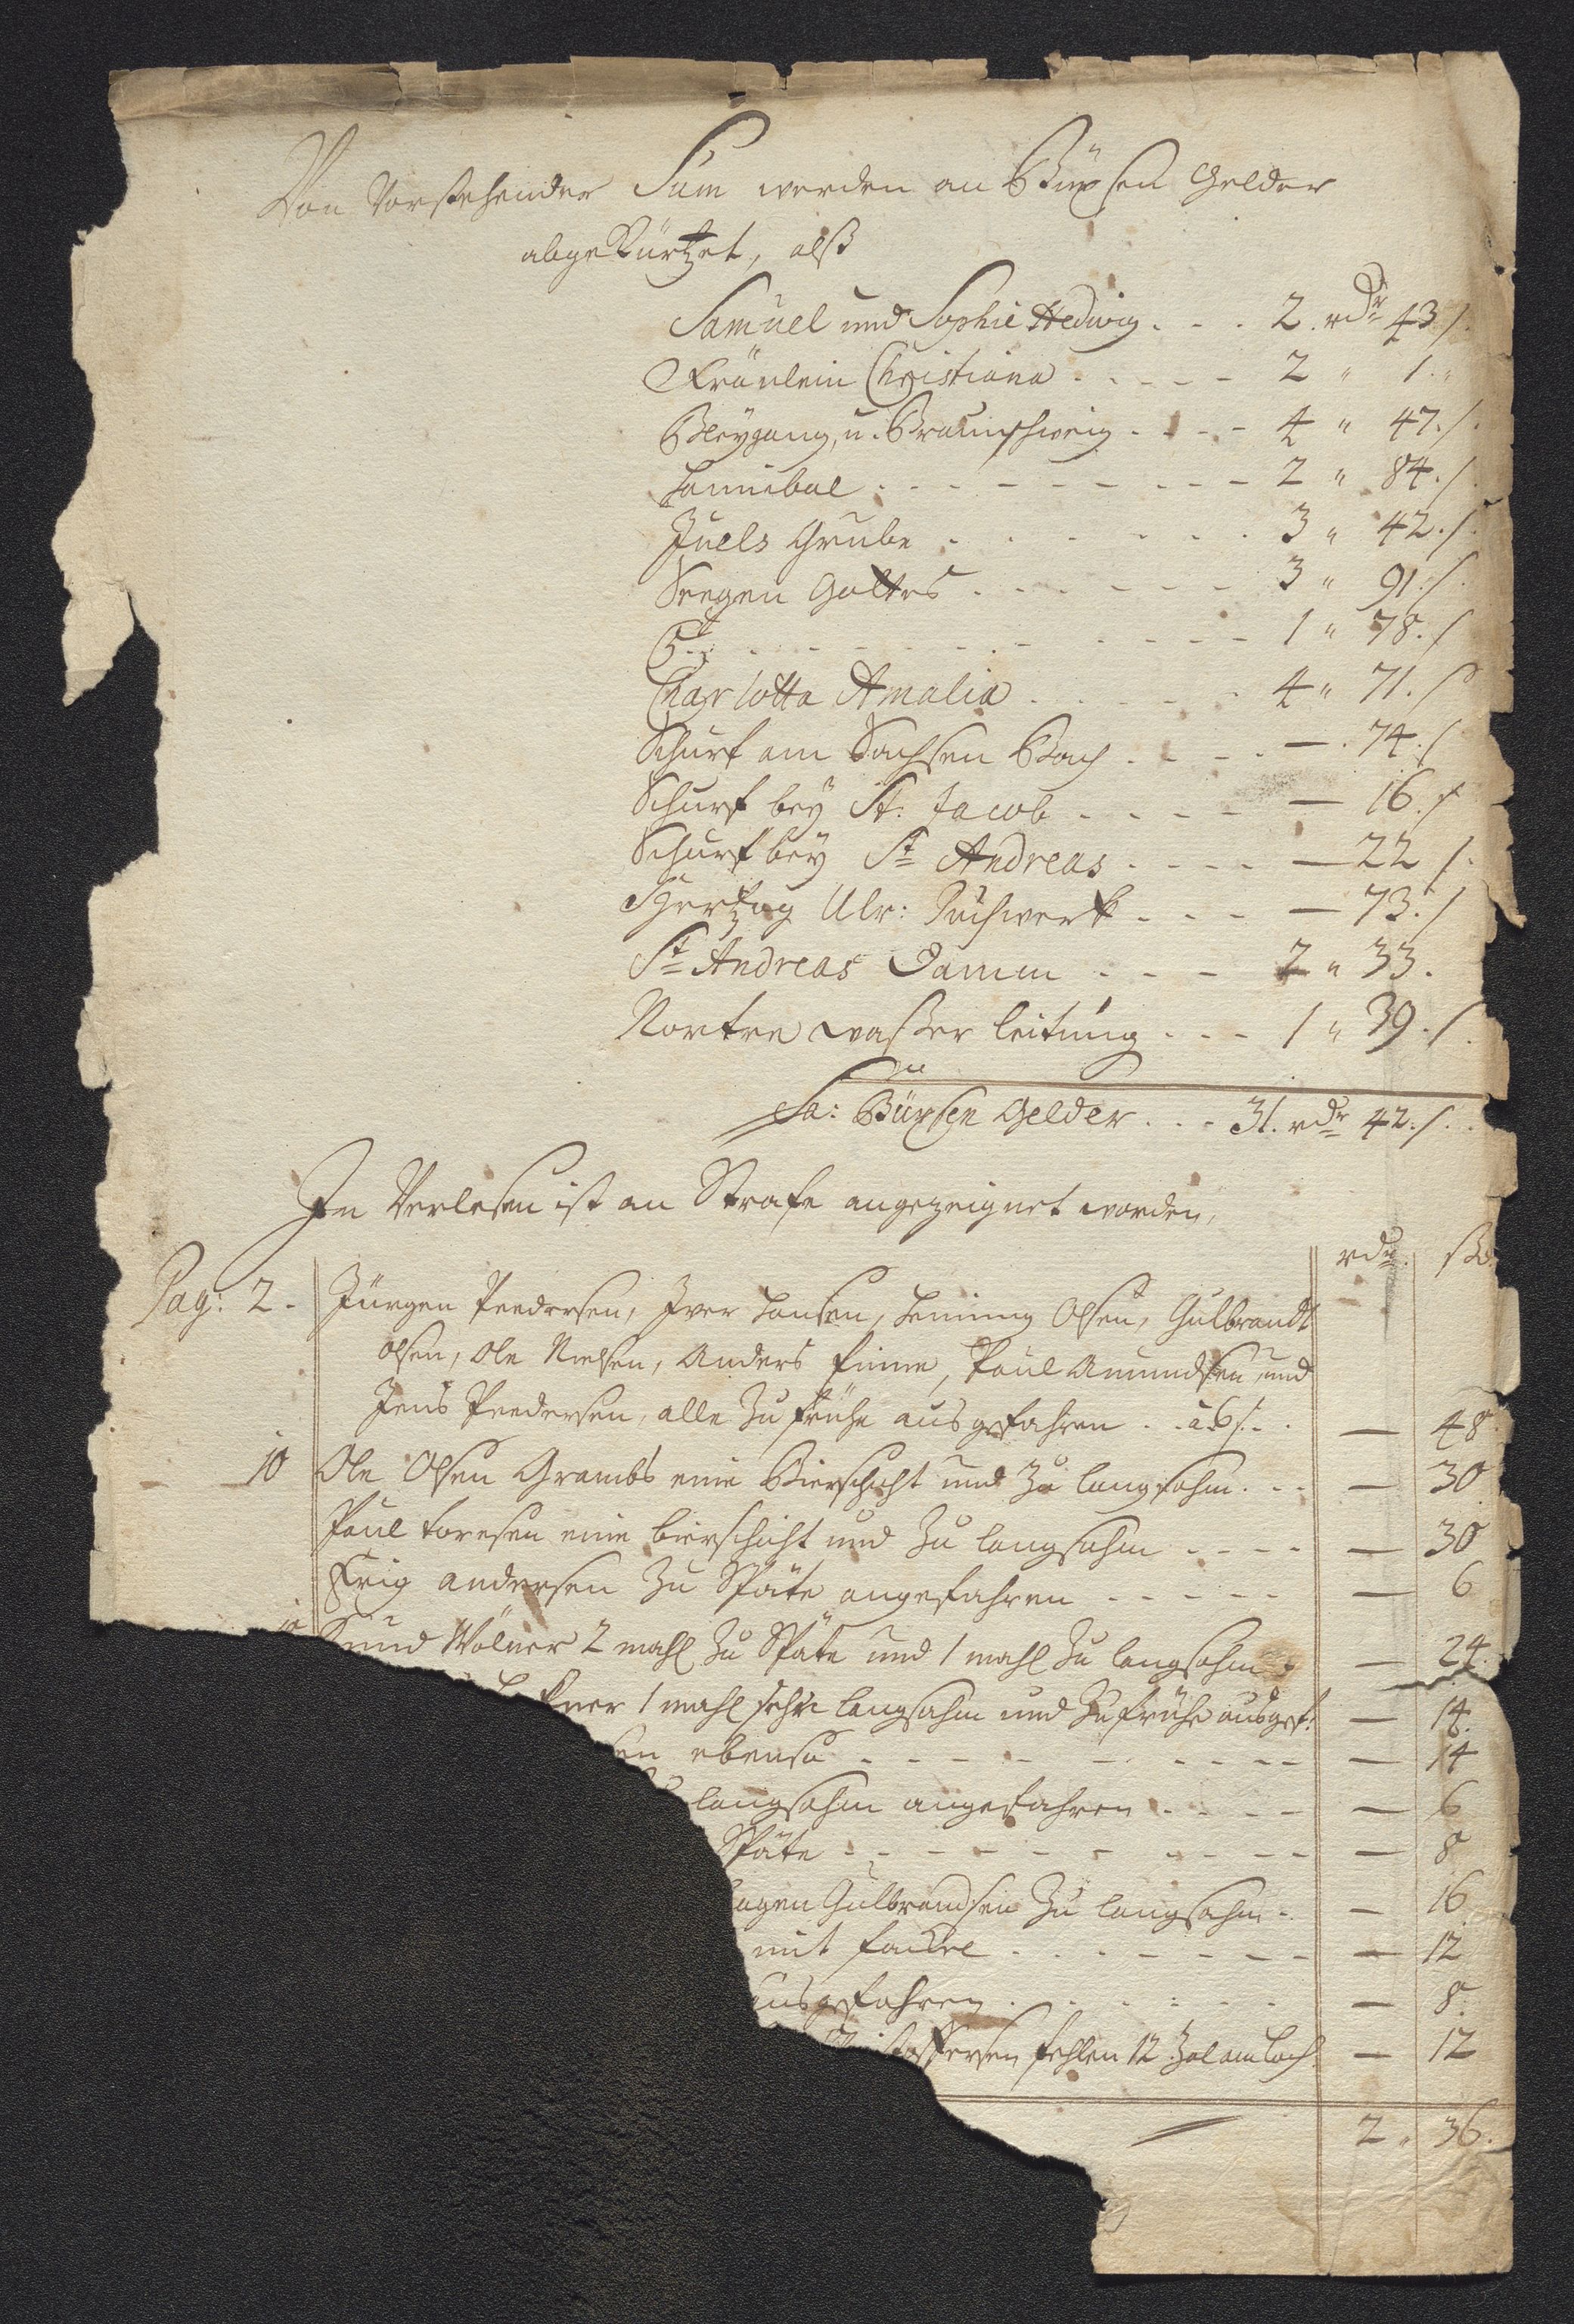 Von Vorstehender Sum werden an Büxsen Gelder
abgekürtzet, alß
Samuel und Sophie Hedwig - - - 2. rdr 43 ß.
Fräulein Christiana - - - - - 2 " 1. "
Bleygang, u. Braunschweig - - - - 4 " 47. ß.
Hannibal - - - - - - - - - 2 " 84. ß
Juels Grube - - - - - - - 3 " 42. ß.
Seegen Gottes - - - - - - - 3 " 91. ß.
1 " 78. ß
Charlotta Amalia - - - - - 4 " 71. ß
Schurf am Sachsen Bach - - - - — 74. ß
Schurf bey St: Jacob - - - - - — 16. ß
Schurf bey St Andreas - - - - — 22 ß.
Hertzog Ulr: Puchwerk - - - — 73. ß
St Andreas Damm - - - 2 " 33.
Nortre wasser leitung - - - 1 " 39. ß.
Sa: Büxsen Gelder - - - 31. rdr 42. ß.
Im Verlesen ist an Strafe angezeignet worden,
rdr. ß
Pag: 2. Jürgen Peedersen, Iver Hansen, Henning Olsen, Gulbrandt
Olsen, Ole Nielsen, Anders Finne, Poul Amundsen und
Jens Peedersen, alle Zu frühe aus gefahren - à 6 ß. - — 48
10 Ole Olsen Grambs eine Bierschicht und Zu langsahm - - - — 30
Poul Toresen eine bierschicht und Zu langsahm - - - - — 30
Erig andersen Zu Späte angefahren - - - - - — 6
Knud Wölner 2 mahl Zu Späte und 1 mahl Zu langsahm - — 24.
1 mahl sehr langsahm und Zu frühe ausgef: — 14.
sen ebenso - - - - - - - - - — 14
langsahm angefahren - - - - — 6
Späte - - - - - - - - - - — 8
Hagen Gulbrandsen Zu langsahm - — 16
mit fackel - - - - - - - — 12
ausgefahren - - - - - - - — 8.
stoffersen fehlen 12 Zol am Loch — 12
2 " 36.